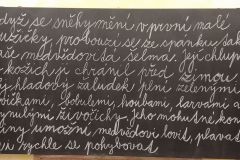 dyž se sněhy mění v první malé
užičky probouzí se ze spánku tak
medvědovitá šelma. Její chlupa
kožich ji chránil před zimou.
hladový žaludek plní zelenými
vičkami, bobulemi, houbami, larvami a
živočichy. Jeho mohutné kon
činy umožní medvědovi lovit, plavat
rychle se pohybovat